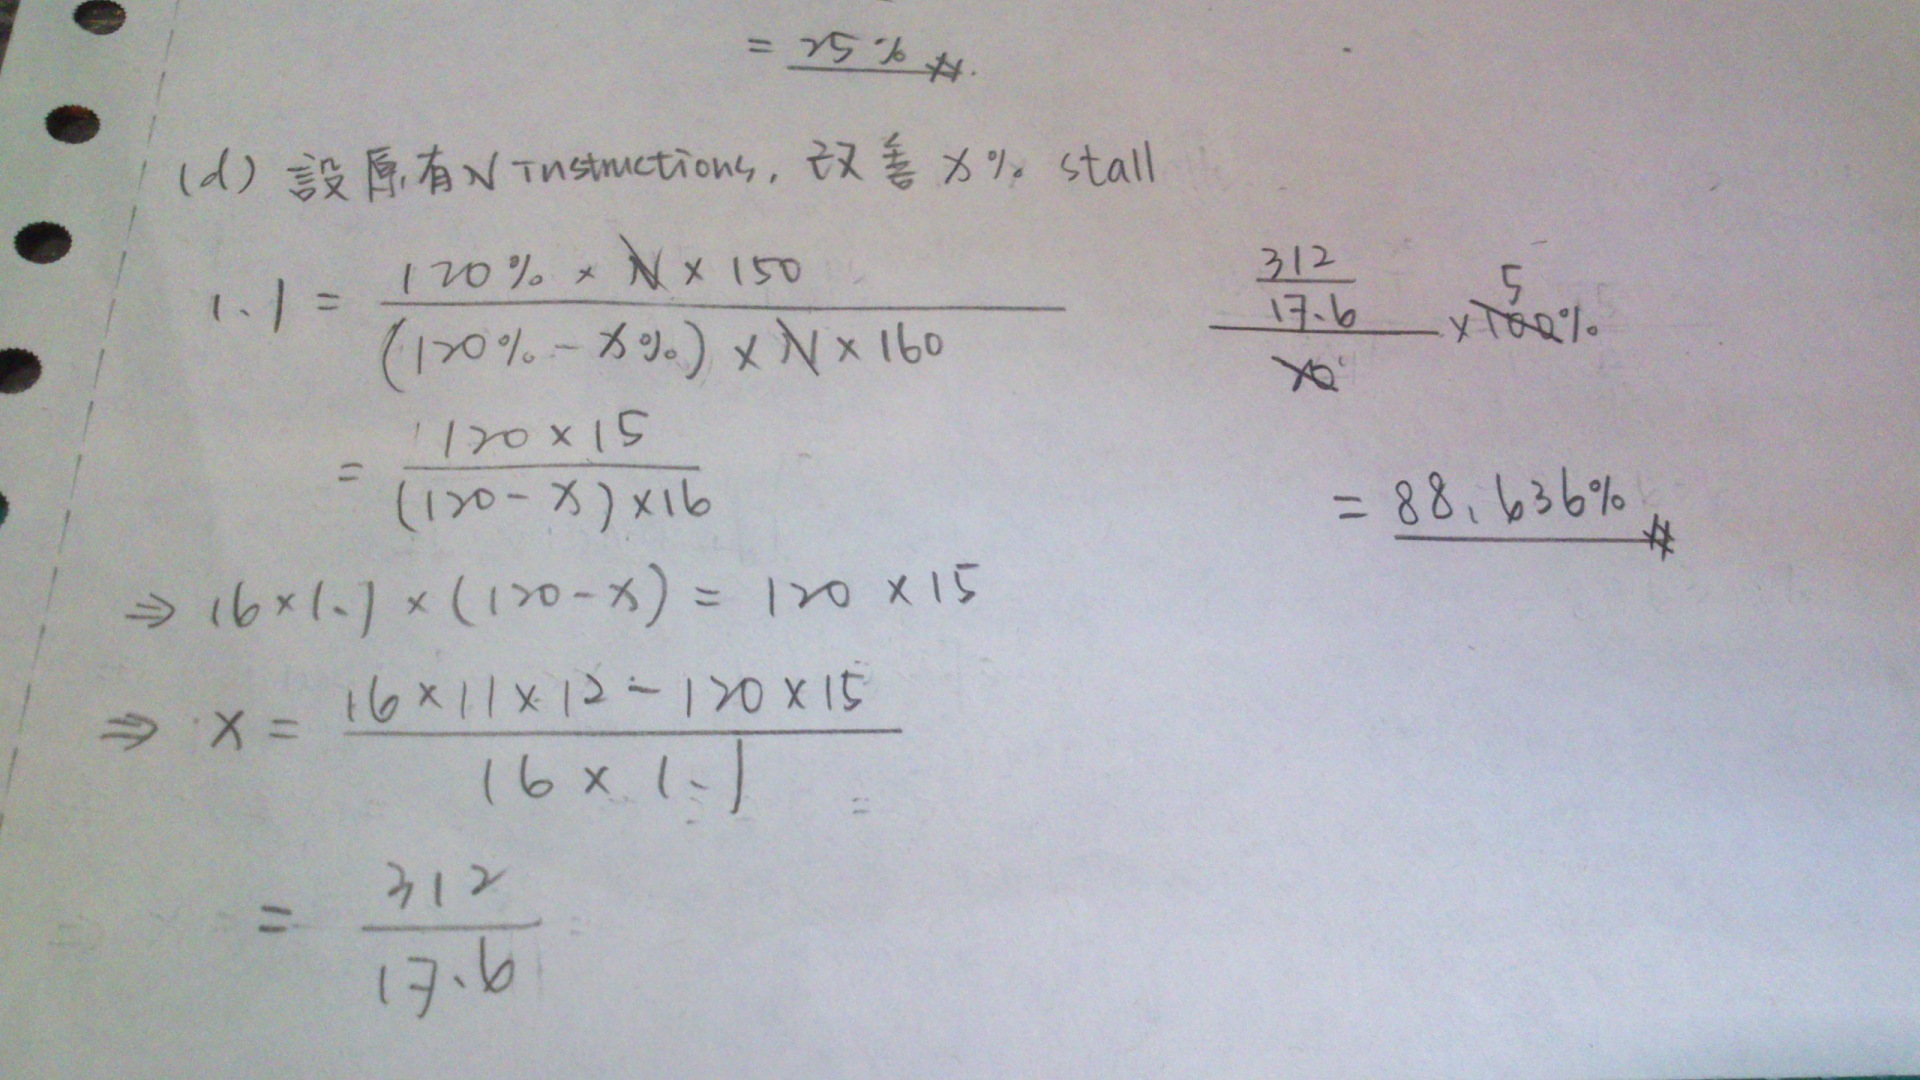 = 25 % #.
(d) 設原有N Instructions, 改善 x% stall
1.1 = 120% × N × 150 / (120% - x%) × N × 160
= 120 × 15 / (120 - x) × 16
⇒ 16 × 1.1 × (120 - x) = 120 × 15
⇒ x = 16 × 11 × 12 - 120 × 15 / 16 × 1.1
= 312 / 17.6
312
17.6
20
× 100%
5
= 88.636% #